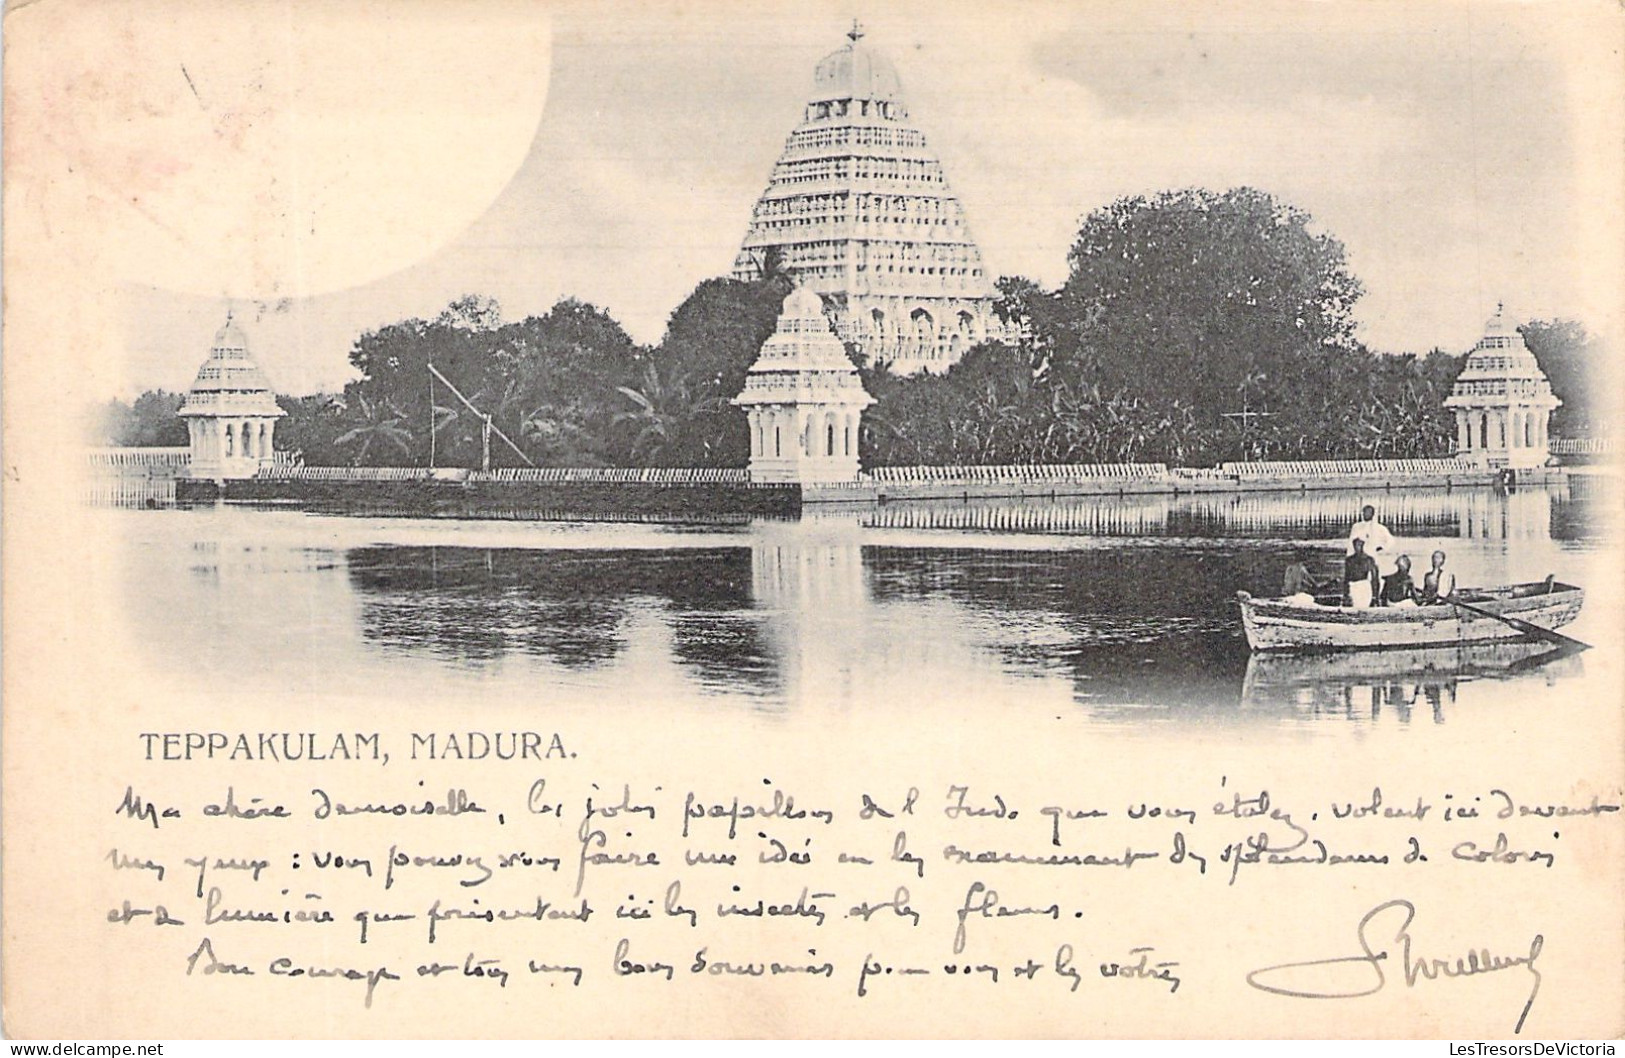 TEPPAKULAM, MADURA.
Ma chère demoiselle, les jolis papillons de l'Inde que vous étalez, volent ici devant
mes yeux : vous pouvez vous faire une idée en les examinant des splendeurs de coloris
et de lumière que présentent ici les insectes et les fleurs.
Bon courage et tous mes bons souvenirs pour vous et les vôtres
LesTresorsDeVictoria